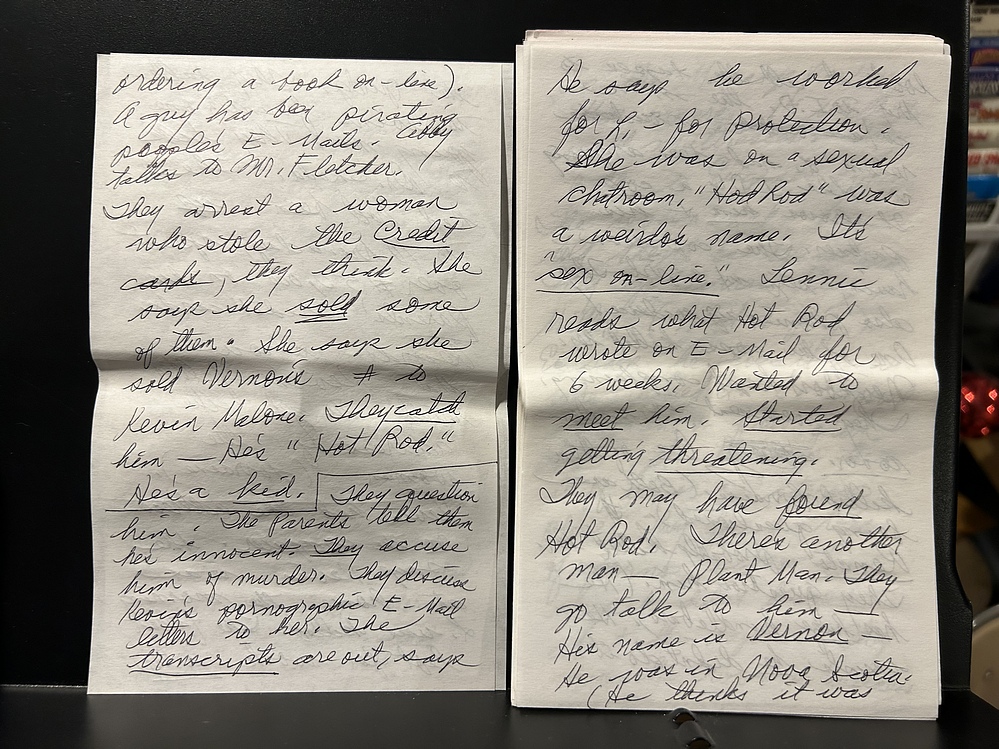 ordering a book on-line).
A guy has been pirating
people's E-Mails. Abby
talks to Mr. Fletcher.
They arrest a woman
who stole the Credit
cards, they think. She
says she sold some
of them. She says she
sold Vernon's # to
Kevin Malone. They catch
him — He's "Hot Rod."
He's a kid. They question
him. The Parents tell them
he's innocent. They accuse
him of murder. They discuss
Kevin's pornographic E-Mail
letters to her. The
transcripts are out, says
He says he worked
for L. – for protection.
She was on a sexual
chatroom. "Hod Rod" was
a weirdo's name. It's
"sex on-line." Lennie
reads what Hot Rod
wrote on E-Mail for
6 weeks. Wanted to
meet him. Started
getting threatening.
They may have found
Hot Rod. There's another
man — Plant Man. They
go talk to him —
His name is Vernon —
He was in Nova Scotia.
(He thinks it was